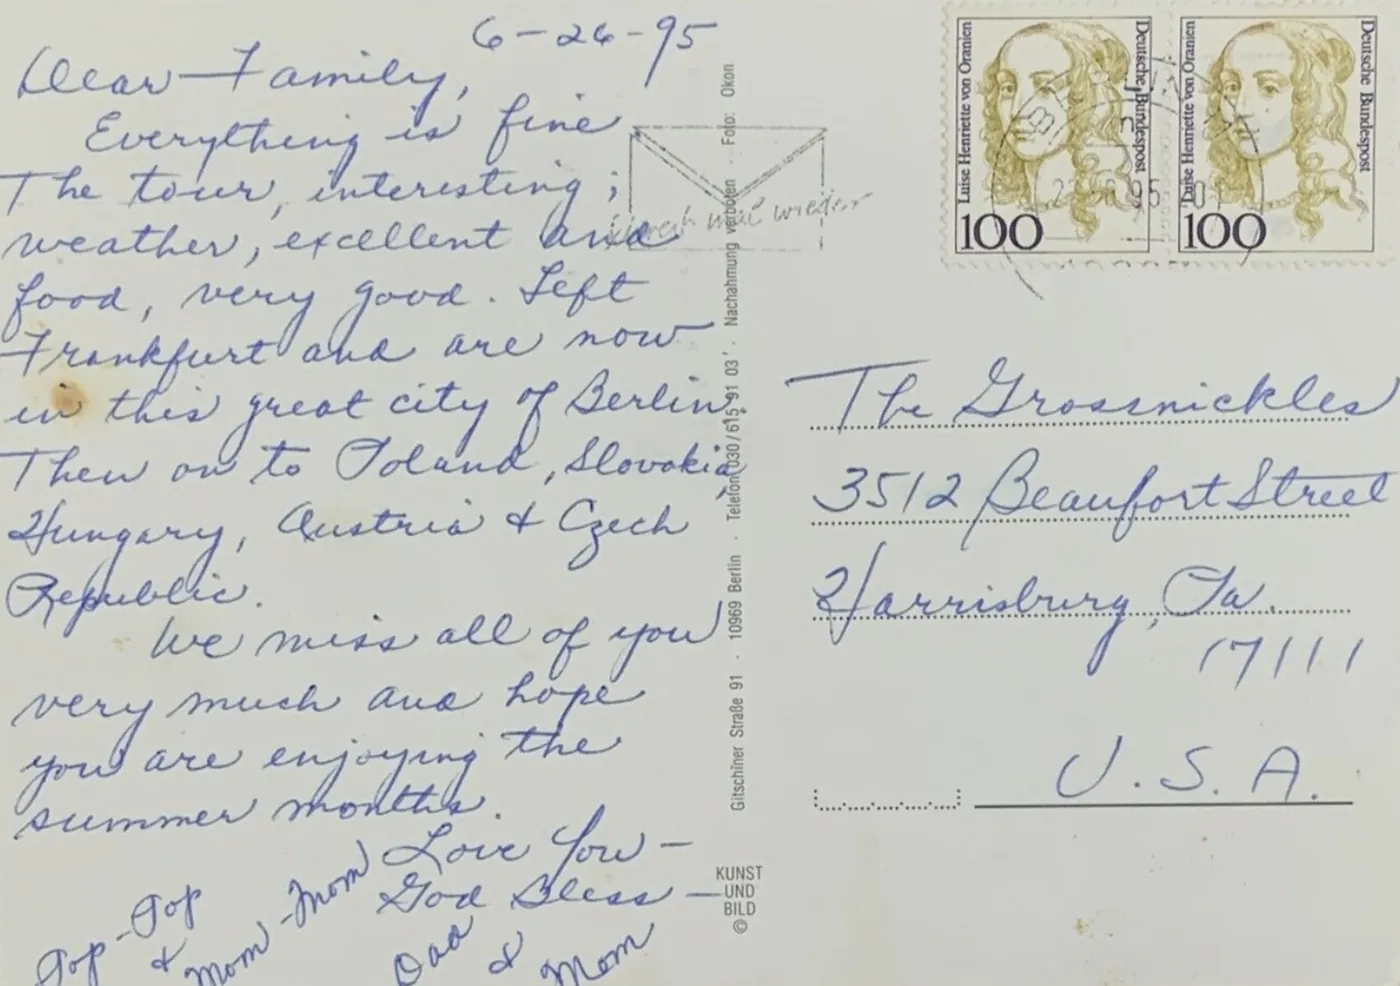 6-26-95
Dear Family,
Everything is fine
The tour, interesting;
weather, excellent and
food, very good. Left
Frankfurt and are now
in this great city of Berlin.
Then on to Poland, Slovakia,
Hungary, Austria & Czech
Republic.
We miss all of you
very much and hope
you are enjoying the
summer months.
Love You -
God Bless -
Pop-Pop
& Mom-Mom
Dad
& Mom
mal wieder
Gitschiner Straße 91 · 10969 Berlin · Telefon 030/615 91 03 · Nachahmung verboten · Foto: Okon
KUNST
UND
BILD
©
Luise Henriette von Oranien
Deutsche Bundespost
100
Luise Henriette von Oranien
Deutsche Bundespost
100
The Grossnickles
3512 Beaufort Street
Harrisburg, Pa.
17111
U.S.A.